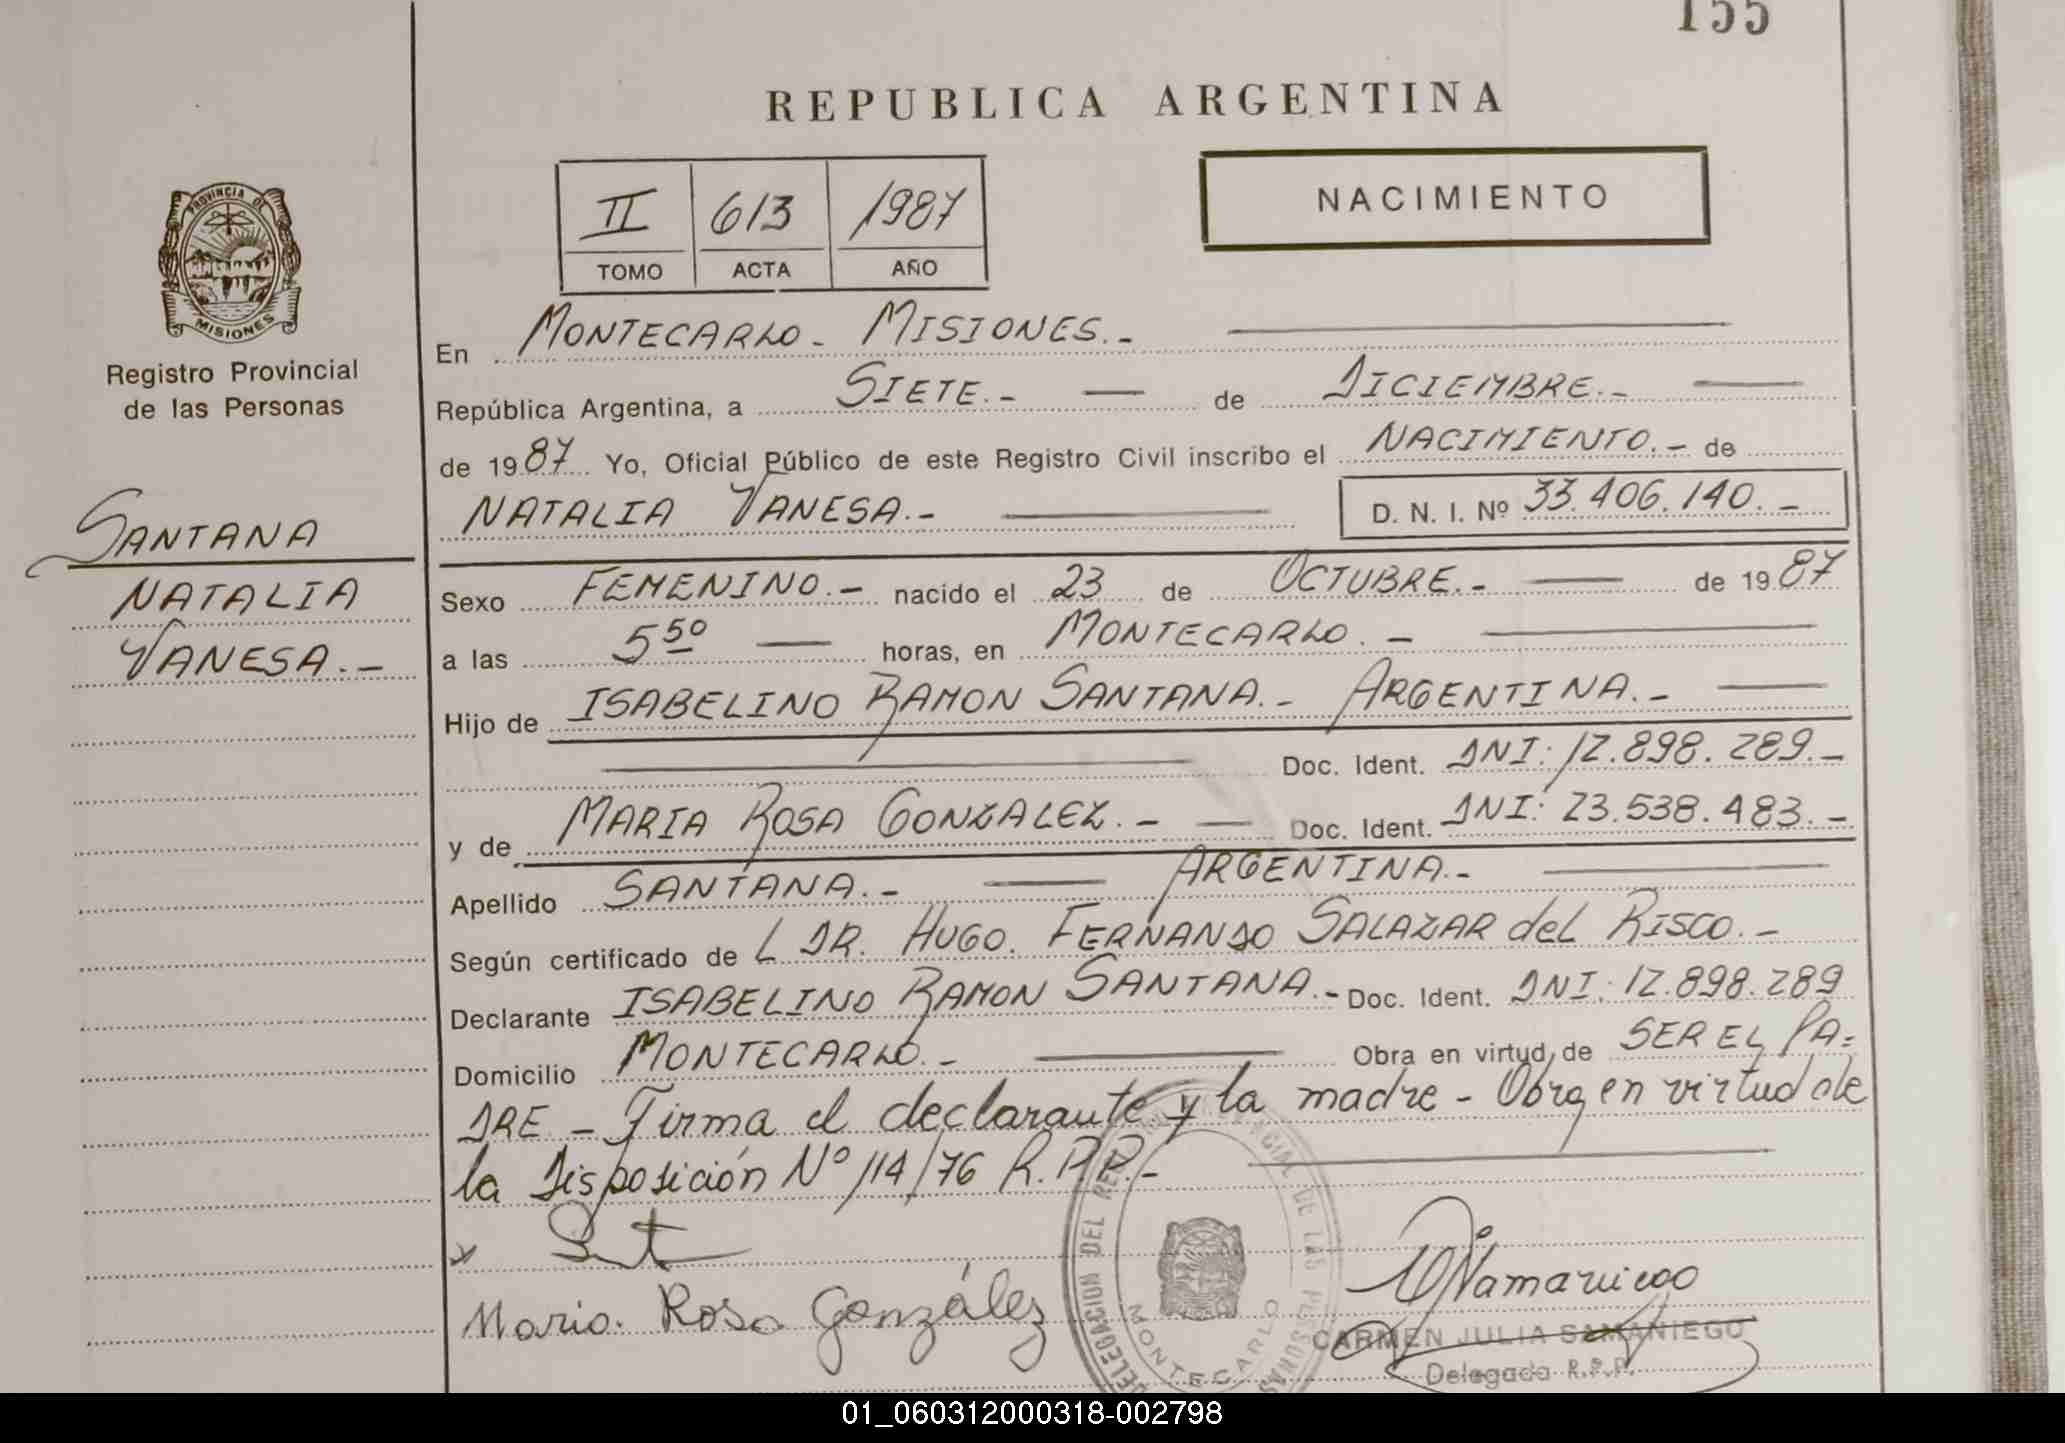 155
REPUBLICA ARGENTINA
II 613 1987
TOMO ACTA AÑO
NACIMIENTO
PROVINCIA DE
MISIONES
Registro Provincial
de las Personas
SANTANA
NATALIA
VANESA.-
En MONTECARLO - MISIONES.-
República Argentina, a SIETE.- de DICIEMBRE.-
de 1987 Yo, Oficial Público de este Registro Civil inscribo el NACIMIENTO.- de
NATALIA VANESA.- D. N. I. Nº 33.406.140.-
Sexo FEMENINO.- nacido el 23 de OCTUBRE.- de 1987
a las 5 50 horas, en MONTECARLO.-
Hijo de ISABELINO RAMON SANTANA.- ARGENTINA.-
Doc. Ident. DNI: 12.898.289.-
y de MARIA ROSA GONZALEZ.- Doc. Ident. DNI: 23.538.483.-
Apellido SANTANA.- ARGENTINA.-
Según certificado de L DR. HUGO. FERNANDO SALAZAR del RISCO.-
Declarante ISABELINO RAMON SANTANA.- Doc. Ident. DNI: 12.898.289
Domicilio MONTECARLO.- Obra en virtud de SER EL PA=
DRE - Firma el declarante y la madre - Obra en virtud de
la Disposición Nº 114/76 R.P.P.-
María Rosa González
DELEGACION DEL REGISTRO PROVINCIAL DE LAS PERSONAS
MONTECARLO
CARMEN JULIA SAMANIEGO
Delegada R.P.P.
01_060312000318-002798